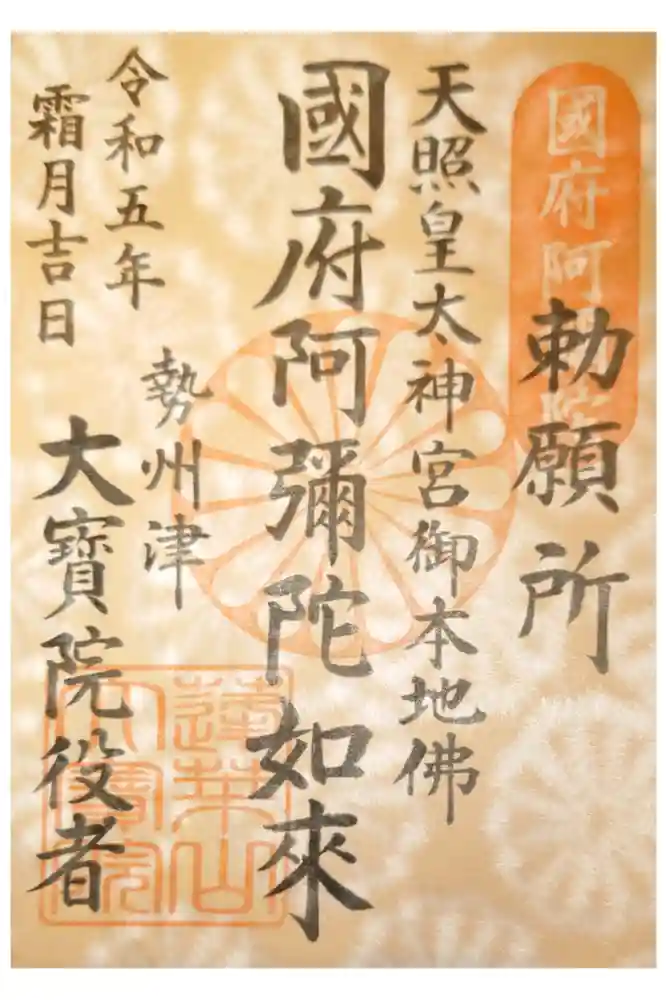 國府阿
勅願所
天照皇太神宮御本地佛
國府阿彌陀如來
勢州津
大寶院役者
令和五年
霜月吉日
蓮華山
大寶院